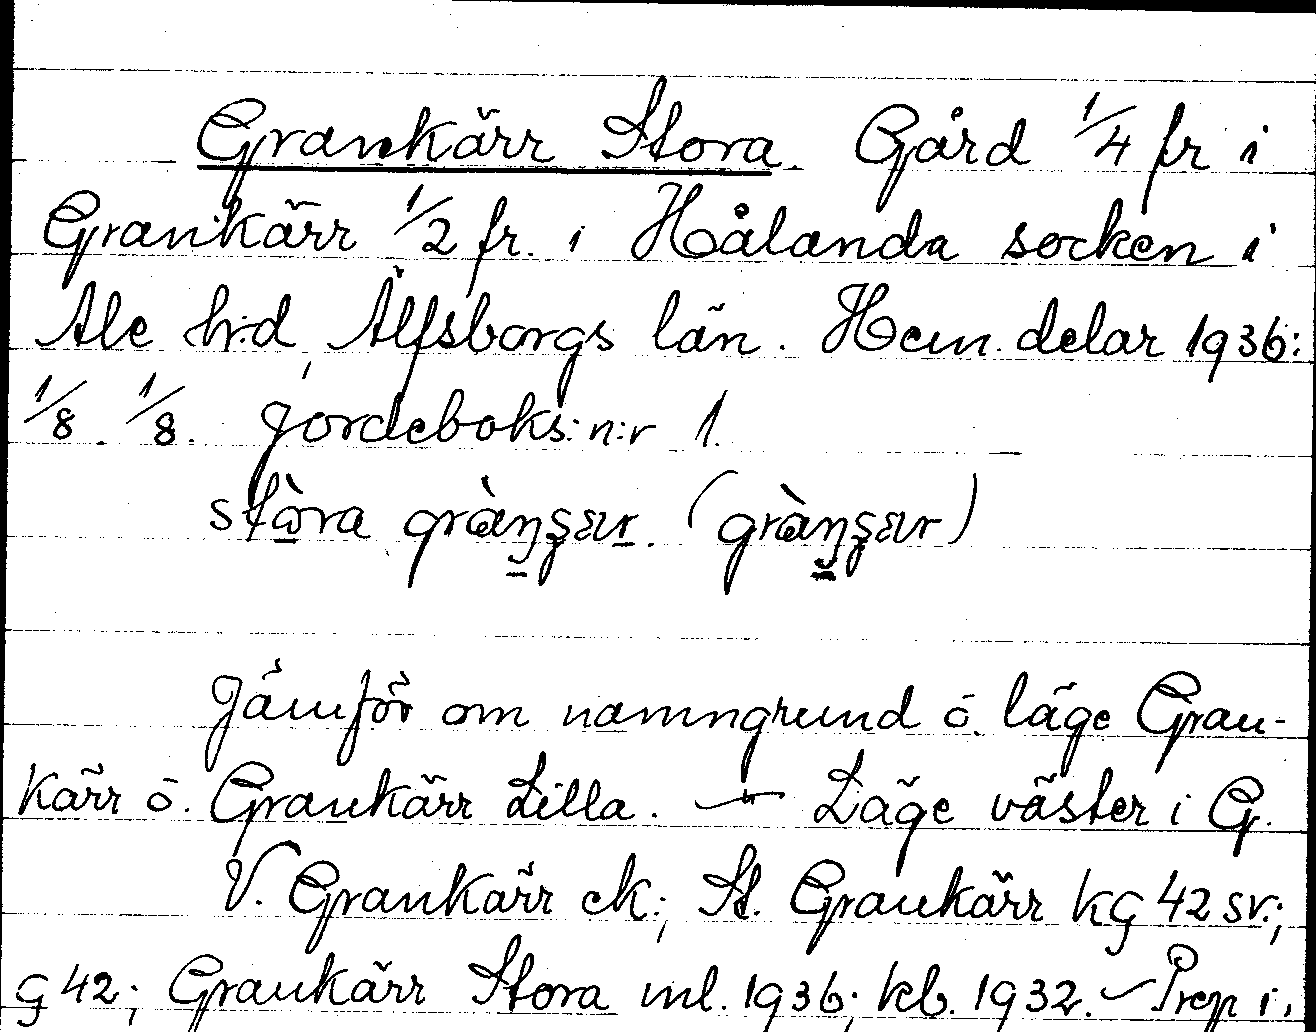 Grankärr Stora. Gård 1/4 fr i
Grankärr 1/2 fr. i Hålanda socken i
Ale h:d, Älfsborgs län. Hem. delar 1936:
1/8. 1/8. Jordeboks: n:r 1.
stòra
Jämför om namngrund o. läge Gran-
kärr o. Grankärr Lilla. — Läge väster i G.
V. Grankärr ek.; St. Grankärr kg 42 sv.;
g 42; Grankärr Stora ml. 1936; kb. 1932. – Prep i.